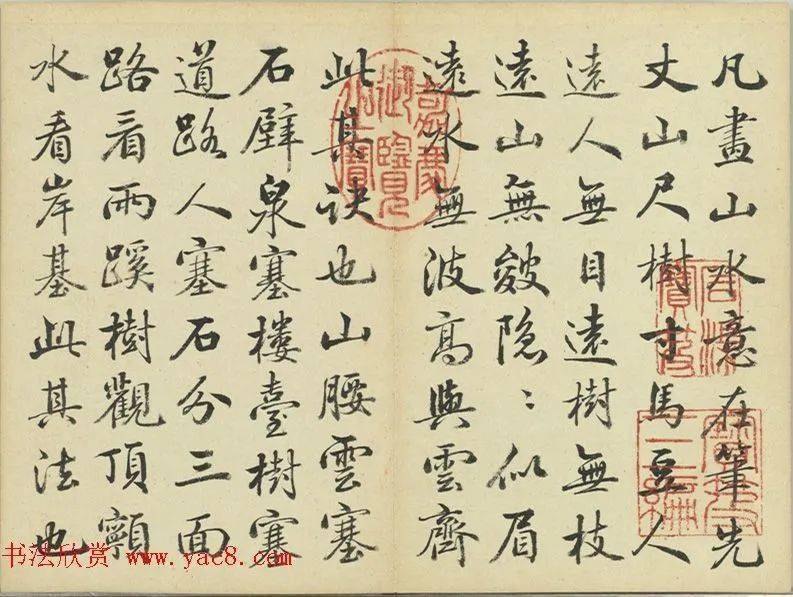 凡畫山水意在筆先
丈山尺樹寸馬豆人
遠人無目遠樹無枝
遠山無皴隱〻似眉
遠水無波高與雲齊
此其訣也山腰雲塞
石壁泉塞樓臺樹塞
道路人塞石分三面
路看兩蹊樹觀頂𩕳
水看岸基此其法也
嘉慶御覽之寶
石渠寶笈
书法欣赏 www.yac8.com